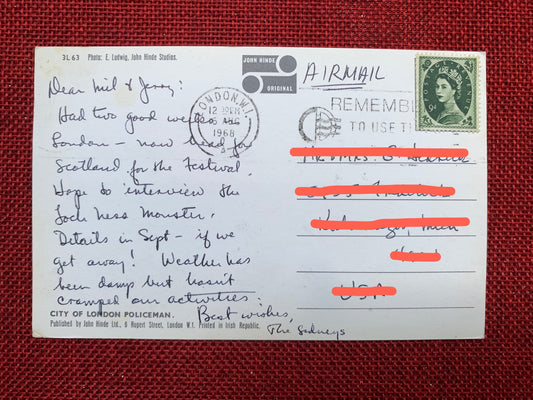 3L63 Photo: E. Ludwig, John Hinde Studios.
JOHN HINDE
ORIGINAL
AIRMAIL
LONDON. W.1.
12
1968
REMEMB
TO USE T
Dear Mil & Jerry:
Had two good weeks in
London – now head for
Scotland for the Festival.
Hope to interview the
Loch Ness Monster.
Details in Sept – if we
get away! Weather has
been damp but hasn't
cramped our activities!
Best wishes,
The Sedneys
USA
CITY OF LONDON POLICEMAN.
Published by John Hinde Ltd., 6 Rupert Street, London W.1. Printed in Irish Republic.